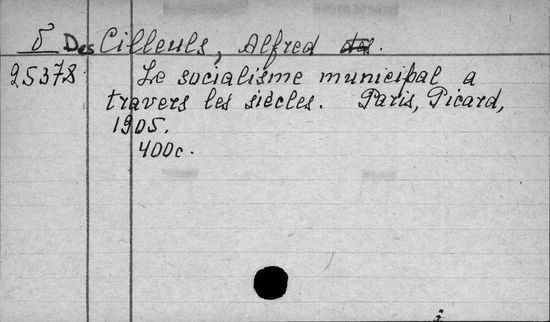 δ Des Cilleuls, Alfred des.
25378 Le socialisme municipal a
travers les siècles. Paris, Picard,
1905.
400c.